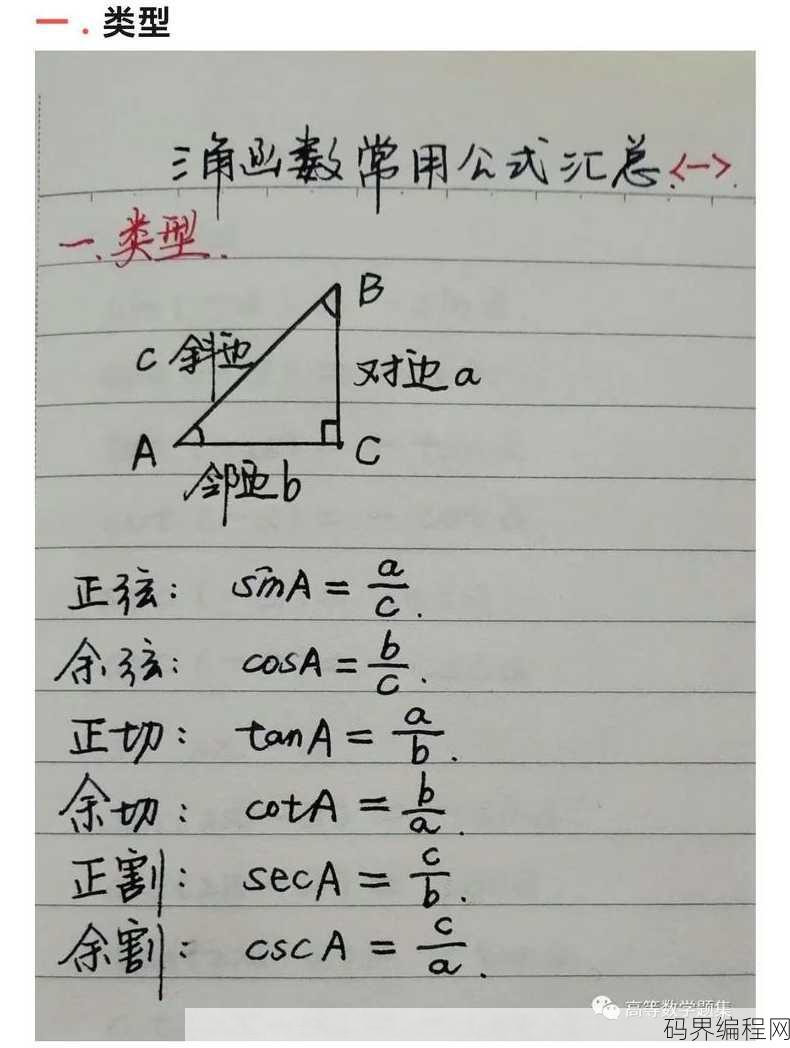 一．类型
三角函数常用公式汇总<一>.
一.类型.
B
c 斜边
对边a
A
C
邻边b
正弦： sinA = a/c.
余弦： cosA = b/c.
正切： tanA = a/b.
余切： cotA = b/a.
正割： secA = c/b.
余割： cscA = c/a.
高等数学题集
码界编程网